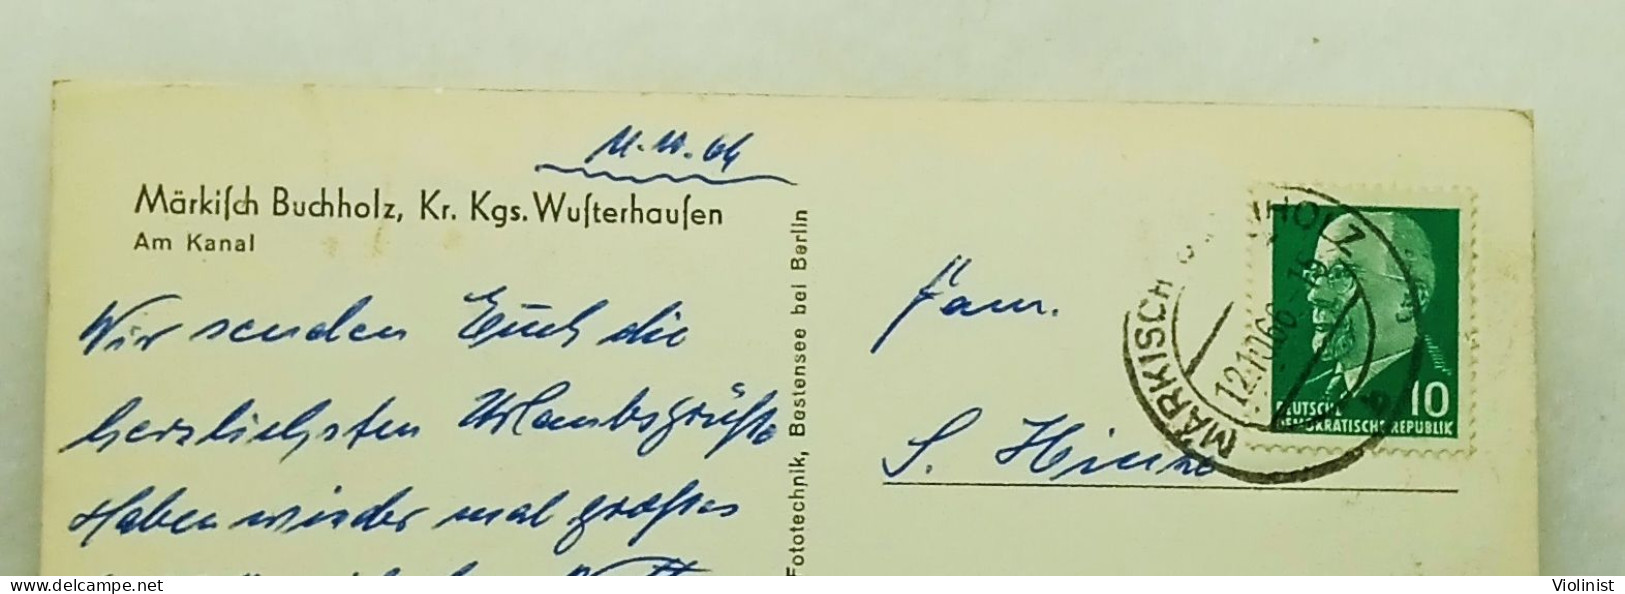 11.10.64
Märkisch Buchholz, Kr. Kgs. Wusterhausen
Am Kanal
Wir senden Euch die
herzlichsten Urlaubsgrüße
Haben wieder mal großes
Fototechnik, Bestensee bei Berlin
Fam.
S. Hinze
MÄRKISCH BUCHHOLZ
12.10.66
10
DEUTSCHE
DEMOKRATISCHE REPUBLIK
www.delcampe.net
Violinist